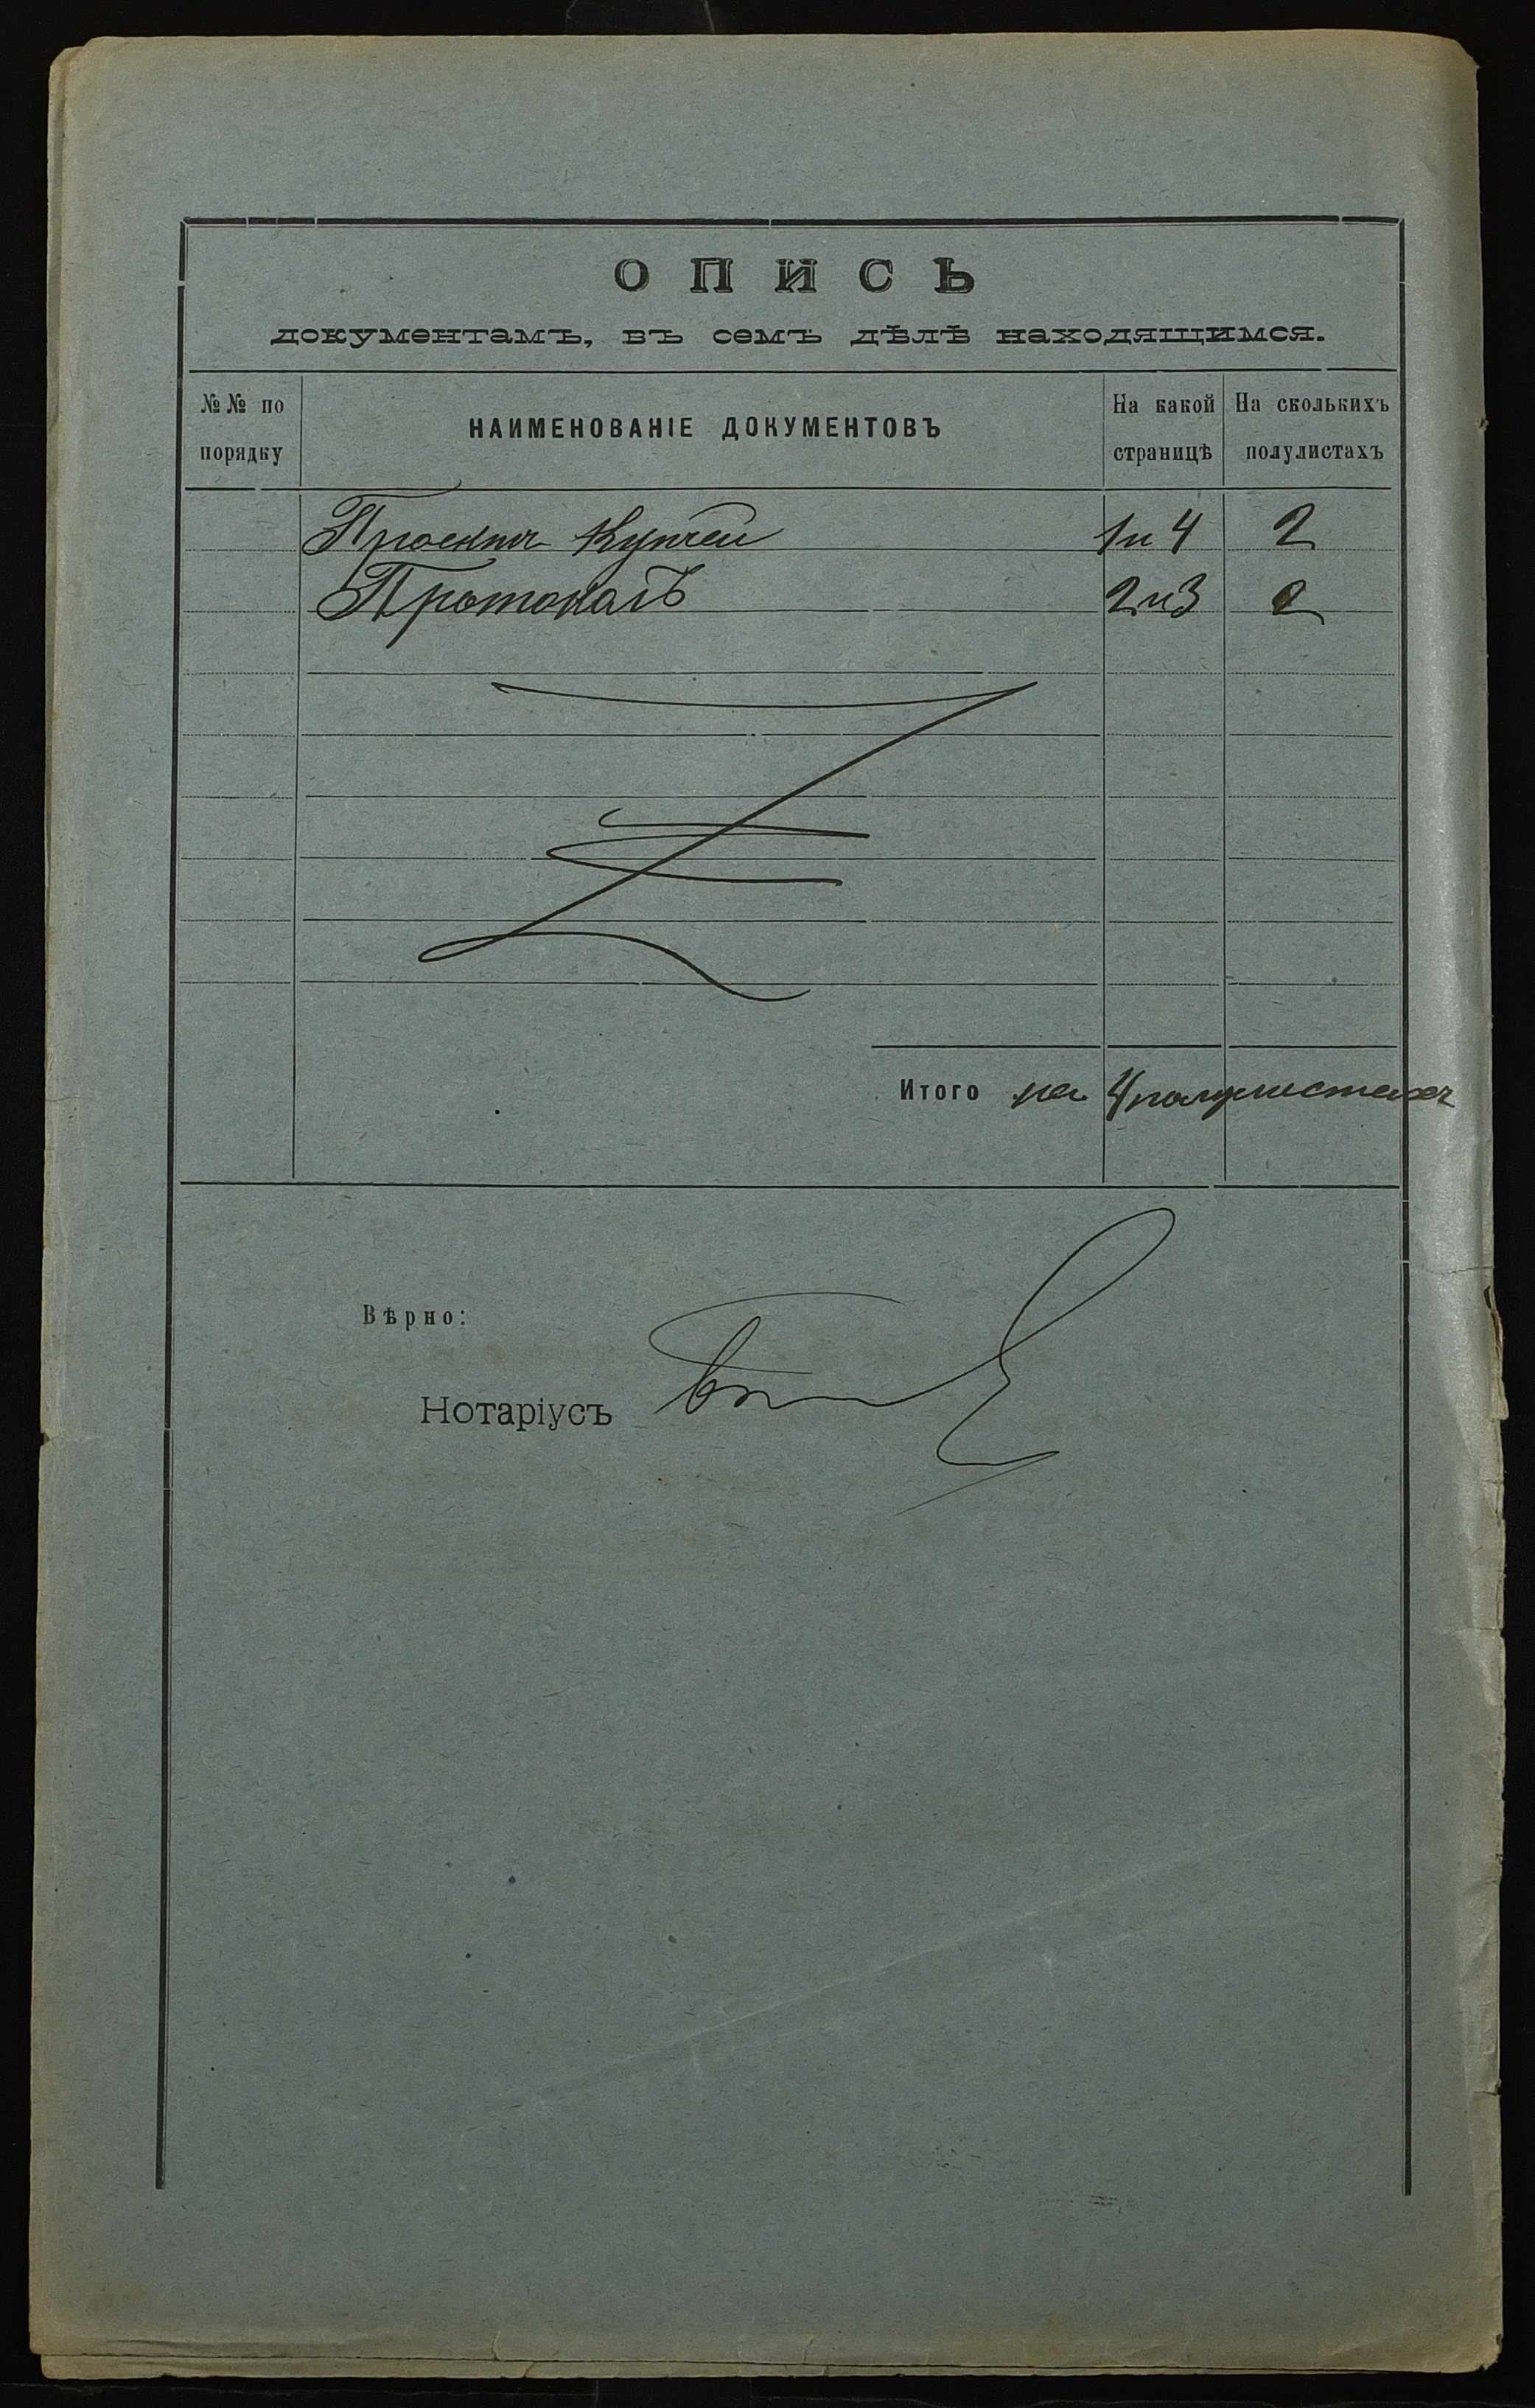 ОПИСЬ
документамъ, въ семъ дѣлѣ находящимся.
№№ по порядку
НАИМЕНОВАНІЕ ДОКУМЕНТОВЪ
На какой страницѣ
На сколькихъ полулистахъ
Проектъ Купчей 1 и 4 2
Протоколъ 2 и 3 2
Итого на 4 полулистахъ
Вѣрно:
Нотаріусъ